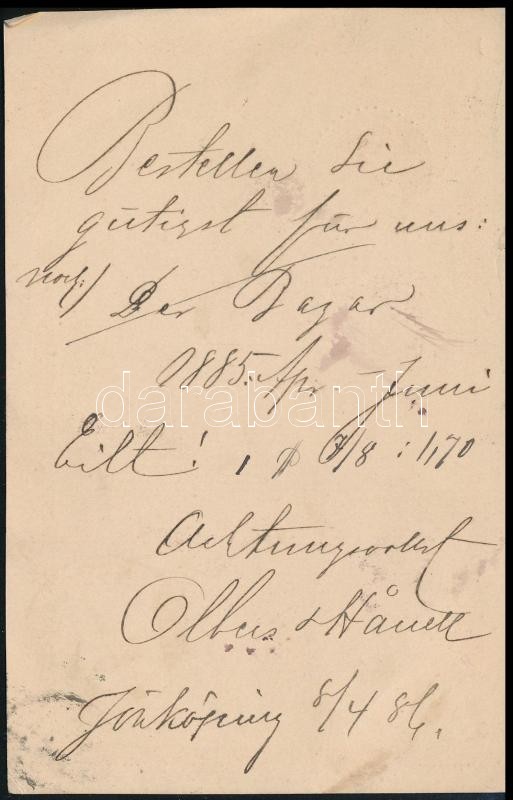 Bestellen Sie
gütigst für uns:
noch:) Der Bazar
1885. Apr – Juni
Eilt! 1 7/8 : 1,70
Achtungsvollst
Jönköping 8/4 86.
darabanth